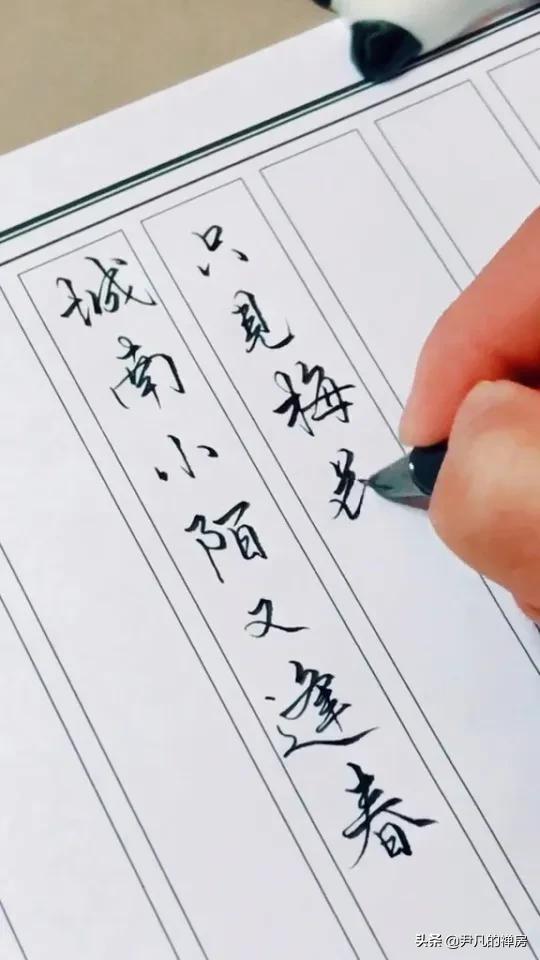 城南小陌又逢春
只見梅
头条 @尹凡的禅房